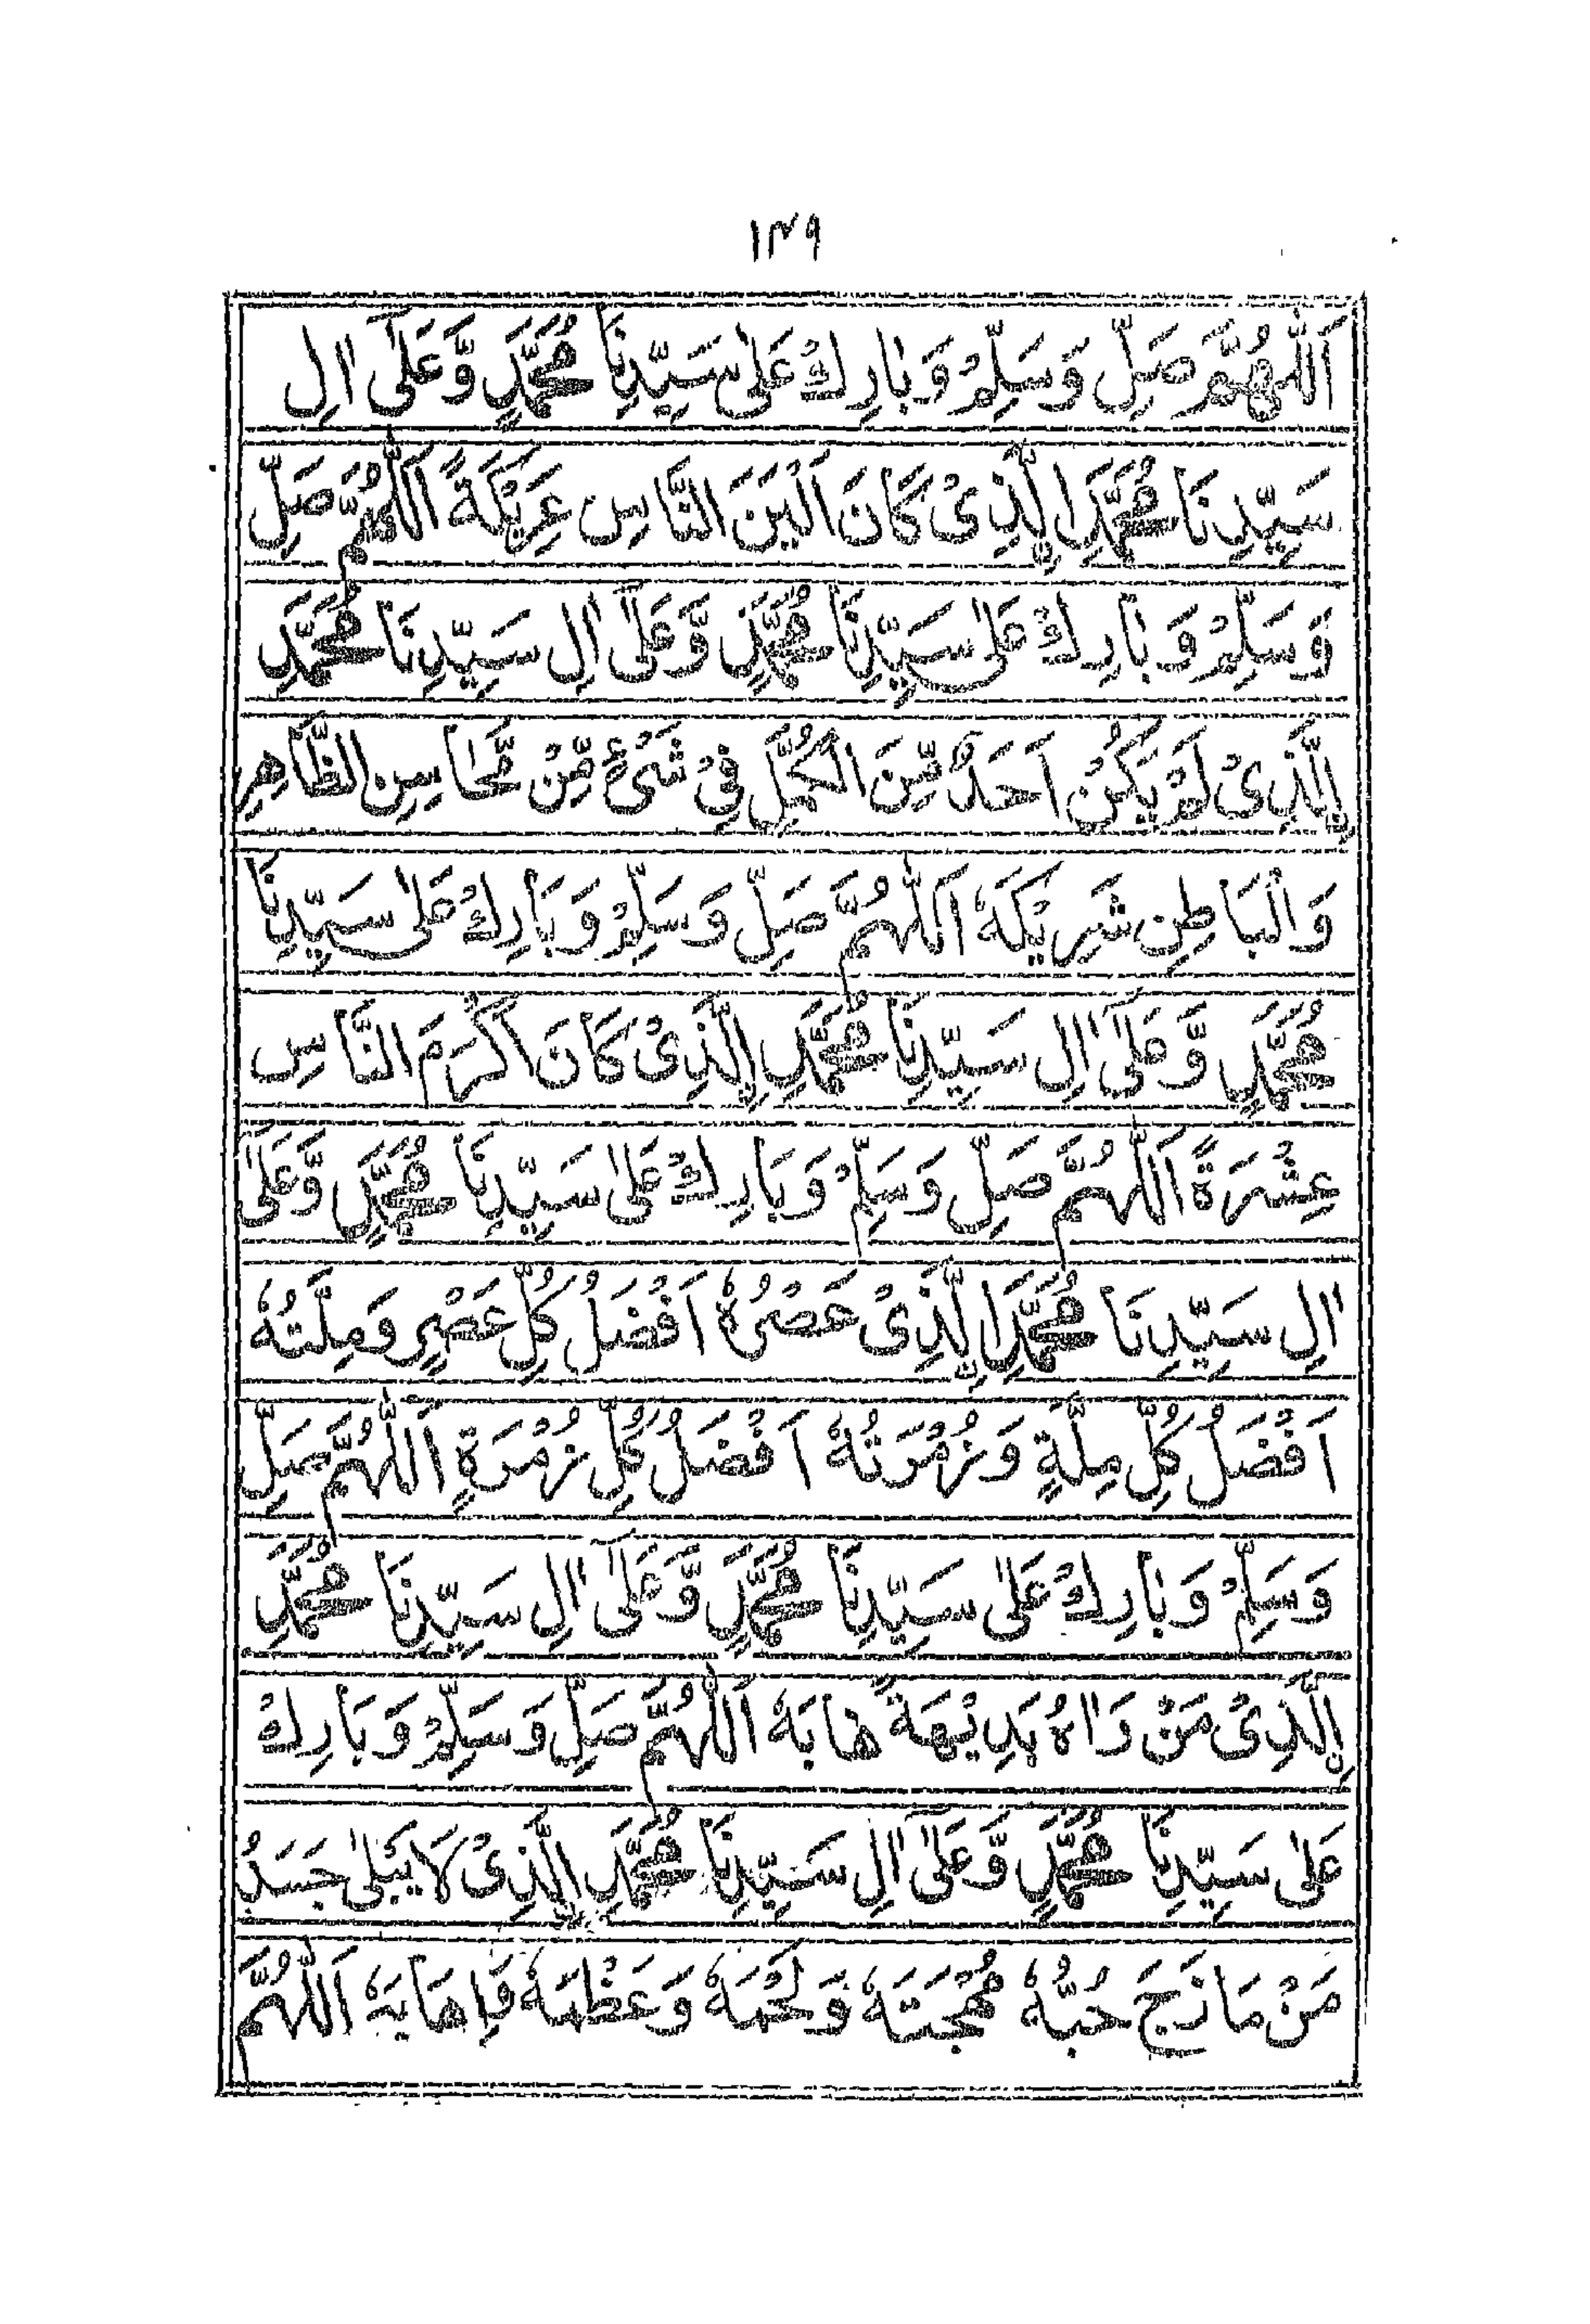 ١٣٩
اَللّٰهُمَّ صَلِّ وَسَلِّمْ وَبَارِكْ عَلٰى سَيِّدِنَا مُحَمَّدٍ وَّعَلٰٓى اٰلِ
سَيِّدِنَا مُحَمَّدِ اِلَّذِىْ كَانَ اَلْيَنَ النَّاسِ عَرِيْكَةً اَللّٰهُمَّ صَلِّ
وَسَلِّمْ وَبَارِكْ عَلٰى سَيِّدِنَا مُحَمَّدٍ وَّعَلٰٓى اٰلِ سَيِّدِنَا مُحَمَّدِ
اِلَّذِىْ لَمْ يَكُنْ اَحَدٌ مِّنَ الْكُمَّلِ فِىْ شَىْءٍ مِّنْ مَّحَاسِنِ الظَّاهِرِ
وَالْبَاطِنِ شَرِيْكَهٗ اَللّٰهُمَّ صَلِّ وَسَلِّمْ وَبَارِكْ عَلٰى سَيِّدِنَا
مُحَمَّدٍ وَّعَلٰٓى اٰلِ سَيِّدِنَا مُحَمَّدِ اِلَّذِىْ كَانَ اَكْرَمَ النَّاسِ
عِشْرَةً اَللّٰهُمَّ صَلِّ وَسَلِّمْ وَبَارِكْ عَلٰى سَيِّدِنَا مُحَمَّدٍ وَّعَلٰٓى
اٰلِ سَيِّدِنَا مُحَمَّدِ اِلَّذِىْ عَصْرُهٗ اَفْضَلُ كُلِّ عَصْرٍ وَمِلَّتُهٗ
اَفْضَلُ كُلِّ مِلَّةٍ وَزُمْرَتُهٗ اَفْضَلُ كُلِّ زُمْرَةٍ اَللّٰهُمَّ صَلِّ
وَسَلِّمْ وَبَارِكْ عَلٰى سَيِّدِنَا مُحَمَّدٍ وَّعَلٰٓى اٰلِ سَيِّدِنَا مُحَمَّدِ
اِلَّذِىْ مَنْ رَاٰهُ بَدِيْهَةً هَابَهٗ اَللّٰهُمَّ صَلِّ وَسَلِّمْ وَبَارِكْ
عَلٰى سَيِّدِنَا مُحَمَّدٍ وَّعَلٰٓى اٰلِ سَيِّدِنَا مُحَمَّدِ اِلَّذِىْ لَا يَبْلٰى جَسَدُ
مَنْ مَازَجَ حُبُّهٗ مُهْجَتَهٗ وَلَحْمَهٗ وَعَظْمَهٗ وَاِهَابَهٗ اَللّٰهُمَّ